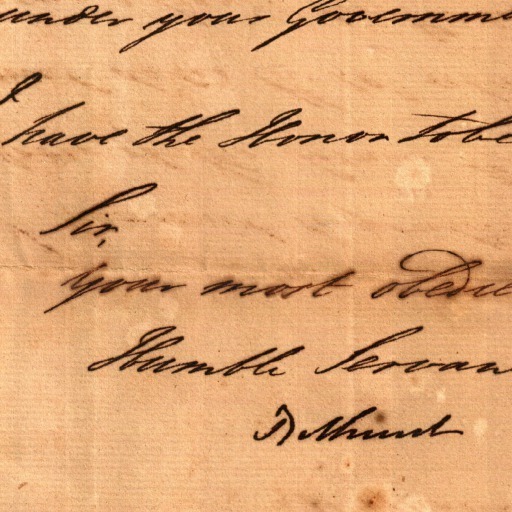 under your Governm
I have the Honor to be
Sir,
Your most obedie
Humble Servan